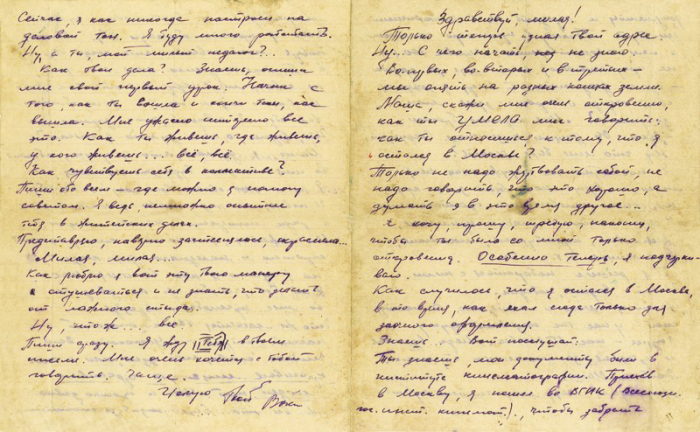 Здравствуй, милая!
Только теперь узнал твой адрес
Ну... С чего начать, как не знаю.
Во-первых, во-вторых и в третьих –
мы опять на разных концах земли.
Маша, скажи мне очень откровенно,
как ты УМЕЛА мне говорить:
как ты относишься к тому, что я
остался в Москве?
Только не надо жертвовать собой, не
надо говорить, что это хорошо, а
думать в это время другое...
Я хочу, прошу, требую, наконец,
чтобы ты была со мной только
откровенна. Особенно теперь, я подчерки-
ваю.
Как случилось, что я остался в Москве,
в то время, как ехал сюда только для
заочного оформления.
Знаешь. Вот послушай:
Ты знаешь, мои документы были в
институте кинематографии. Приехав
в Москву, я пошел во ВГИК (Всесоюз-
гос. инст. кинемат.), чтобы забрать
Сейчас, я как никогда настроен на
деловой тон. Я буду много работать.
Ну, а ты, мой милый педагог?..
Как твои дела? Знаешь, опиши
мне свой первый урок. Начни с
того, как ты вошла и кончи тем, как
вышла. Мне ужасно интересно все
это. Как ты живешь, где живешь,
у кого живешь... всё, всё.
Как чувствуешь себя в коллективе?
Пиши обо всем – где можно я помогу
советом. Я ведь немножко опытнее
тебя в житейских делах.
Представляю, наверно застеснялась, покраснела...
Милая, милая...
Как люблю я вот эту твою манеру
стушеваться и не знать, что делать
от ложного стыда.
Ну, что ж... всё
Пиши сразу. Я жду ТЕБЯ в твоем
письме. Мне очень хочется с тобой
говорить. Чаще.
Целую Твой